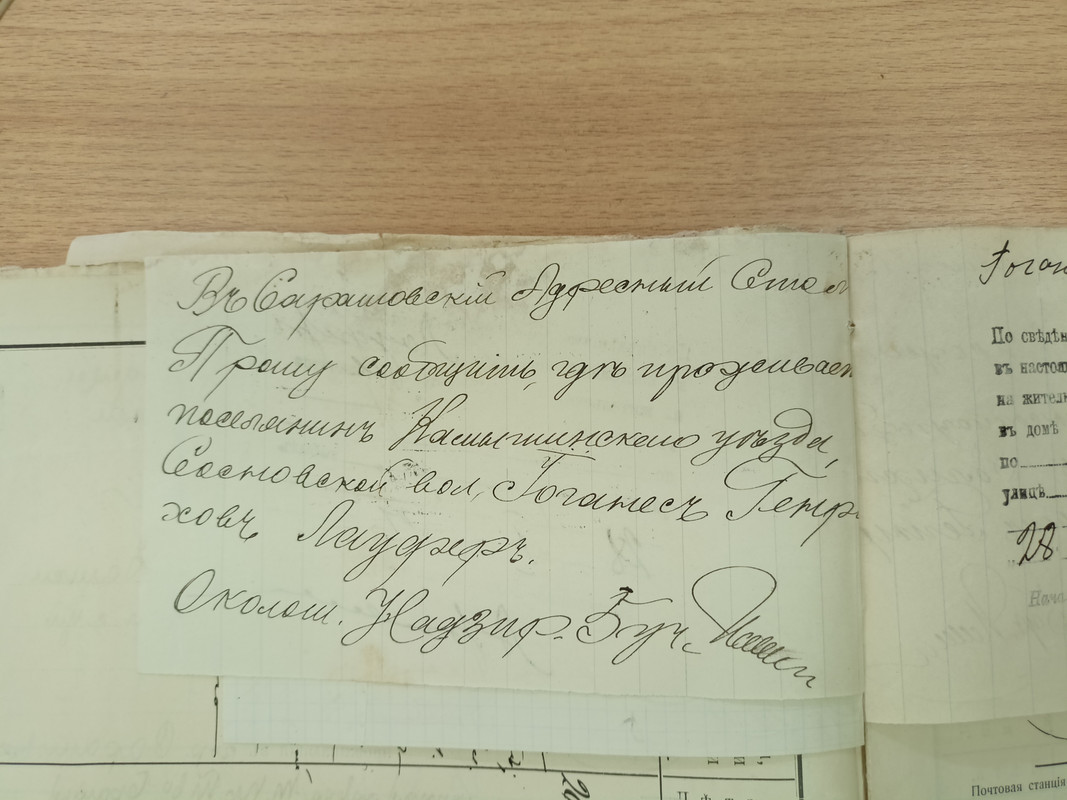 Въ Саратовскій Адресный Стол
Прошу сообщить, гдѣ проживает
поселянинъ Камышинскаго уѣзда,
Сосновской вол, Гоганесъ Генр
ховъ Лауферъ.
Околот. Надзир.
Гоган
По свѣдѣн
въ настоя
на жители
въ домѣ
по
улицѣ
28
Нача
Почтовая станція